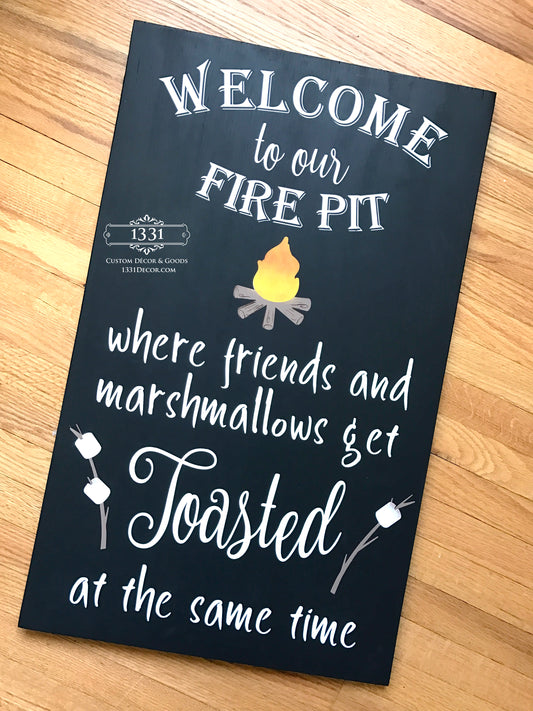 WELCOME
to our
FIRE PIT
1331
CUSTOM DÉCOR & GOODS
1331DECOR.COM
where friends and
marshmallows get
Toasted
at the same time